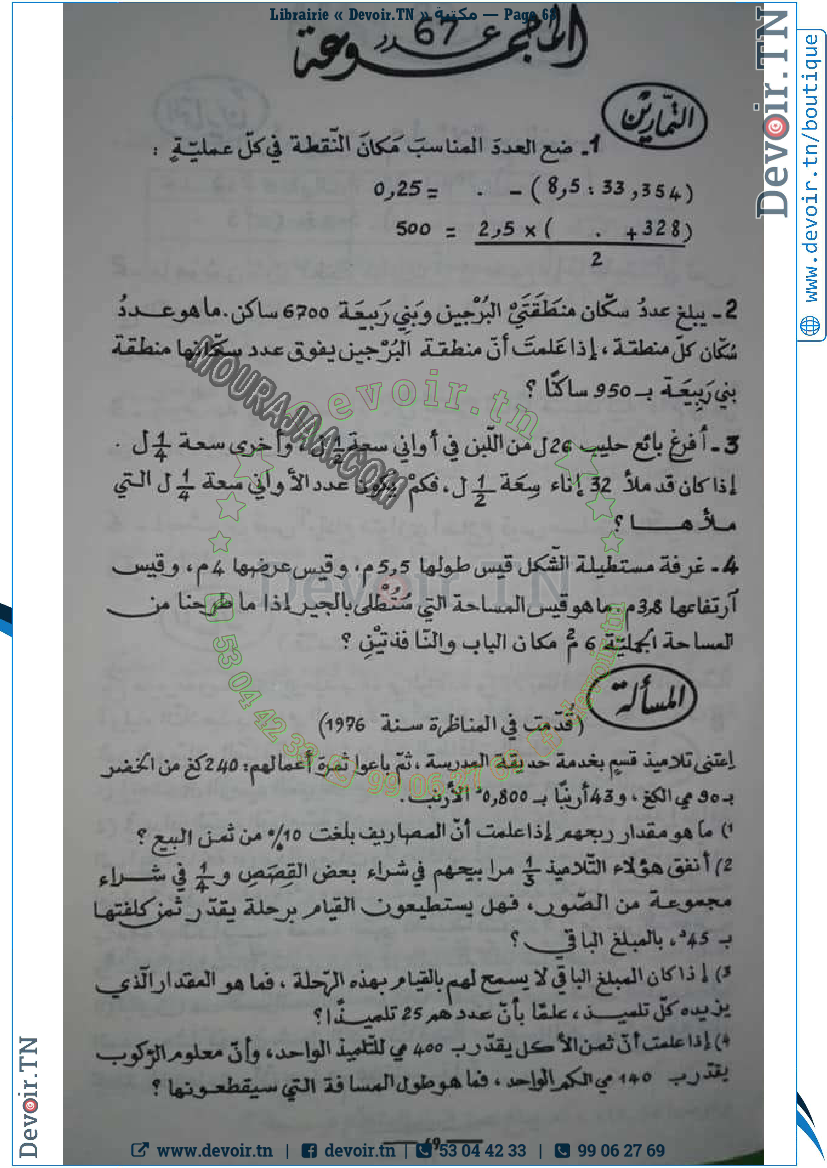 Librairie « Devoir.TN » مكتبة — Page 68
المجموعة عدد 67
التمارين
1ـ ضع العدد المناسب مكان النقطة في كل عملية :
0,25 = . − ( 8,5 : 33,354)
500 = 2,5 x ( . + 328)
2
2ـ يبلغ عدد سكان منطقتي البرجين وبني ربيعة 6700 ساكن. ما هو عدد
سكان كل منطقة، إذا علمت أن منطقة البرجين يفوق عدد سكانها منطقة
بني ربيعة بـ 950 ساكنا ؟
3ـ أفرغ بائع حليب 26ل من اللبن في أواني سعة 1/2 ل، وأخرى سعة 1/4 ل .
إذا كان قد ملأ 32 إناء سعة 1/2 ل، فكم يكون عدد الأواني سعة 1/4 ل التي
ملأهـا ؟
4ـ غرفة مستطيلة الشكل قيس طولها 5,5م، وقيس عرضها 4م، وقيس
آرتفاعها 3,8م. ما هو قيس المساحة التي ستطلى بالجير إذا ما طرحنا من
المساحة الجملية 6 م² مكان الباب والنافذتين ؟
المسألة
(قدمت في المناظرة سنة 1976)
اعتنى تلاميذ قسم بخدمة حديقة المدرسة، ثم باعوا ثمرة أعمالهم: 240كغ من الخضر
بـ 90 مي الكغ، و43 أرنبا بـ 0,800د الأرنب.
1) ما هو مقدار ربحهم إذا علمت أن المصاريف بلغت 10% من ثمن البيع ؟
2) أنفق هؤلاء التلاميذ 1/3 مرابيحهم في شراء بعض القصص و 1/4 في شراء
مجموعة من الصور، فهل يستطيعون القيام برحلة يقدر ثمن كلفتها
بـ 45د، بالمبلغ الباقي ؟
3) إذا كان المبلغ الباقي لا يسمح لهم بالقيام بهذه الرحلة، فما هو المقدار الذي
يزيده كل تلميذ، علما بأن عددهم 25 تلميذا؟
4) إذا علمت أن ثمن الأكل يقدر بـ 400 مي للتلميذ الواحد، وأن معلوم الركوب
يقدر بـ 140 مي الكم الواحد، فما هو طول المسافة التي سيقطعونها ؟
69
www.devoir.tn | devoir.tn | 53 04 42 33 | 99 06 27 69
Devoir.TN
www.devoir.tn/boutique
Devoir.TN
MOURAJAA.COM
devoir.tn
Devoir.TN
53 04 42 33
99 06 27 69
devoir.tn